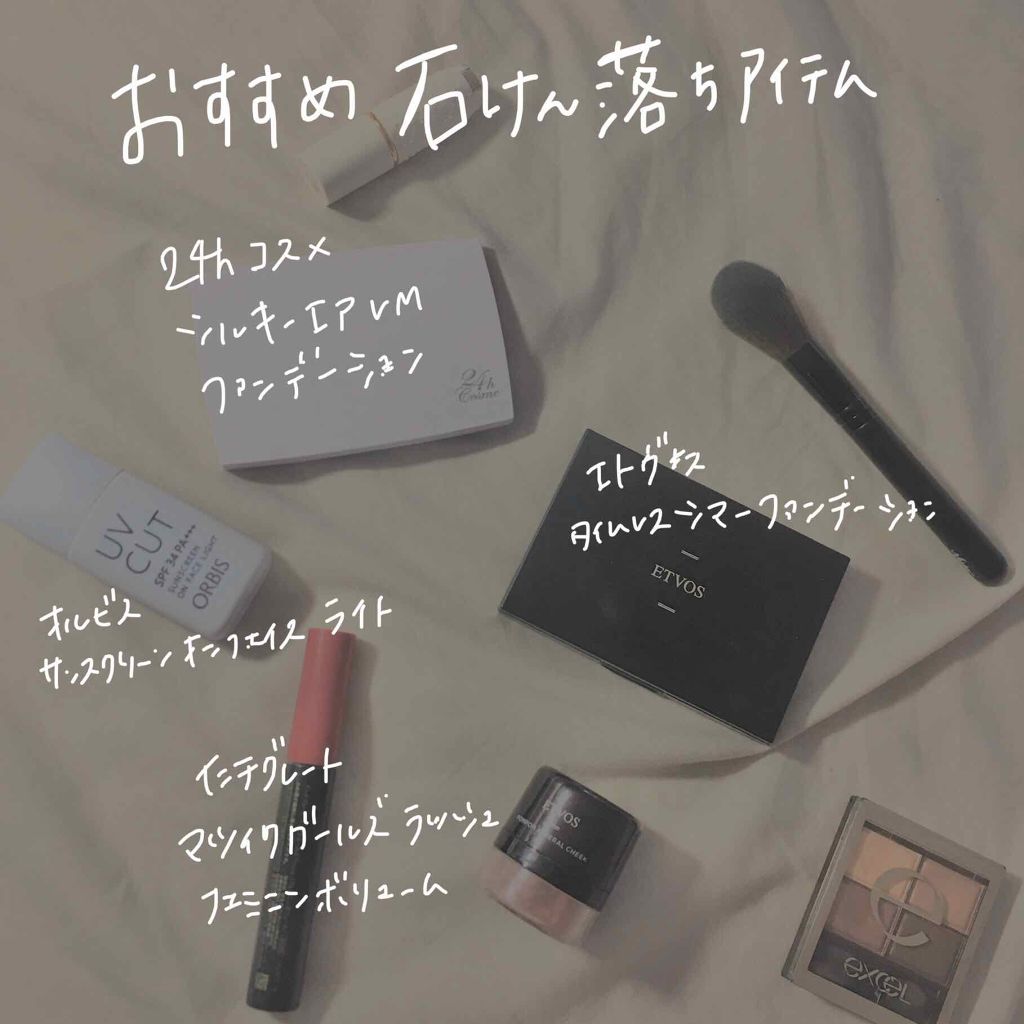 おすすめ 石けん落ちアイテム
24h コスメ
シルキーエア UM
ファンデーション
24h
Cosme
エトヴォス
タイムレスシマーファンデーション
ETVOS
UV
CUT
SPF 34 PA+++
SUNSCREEN
ON FACE LIGHT
ORBIS
オルビス
サンスクリーン オンフェイス ライト
インテグレート
マツイクガールズ ラッシュ
フェミニンボリューム
ETVOS
MINERAL CHEEK
e
excel